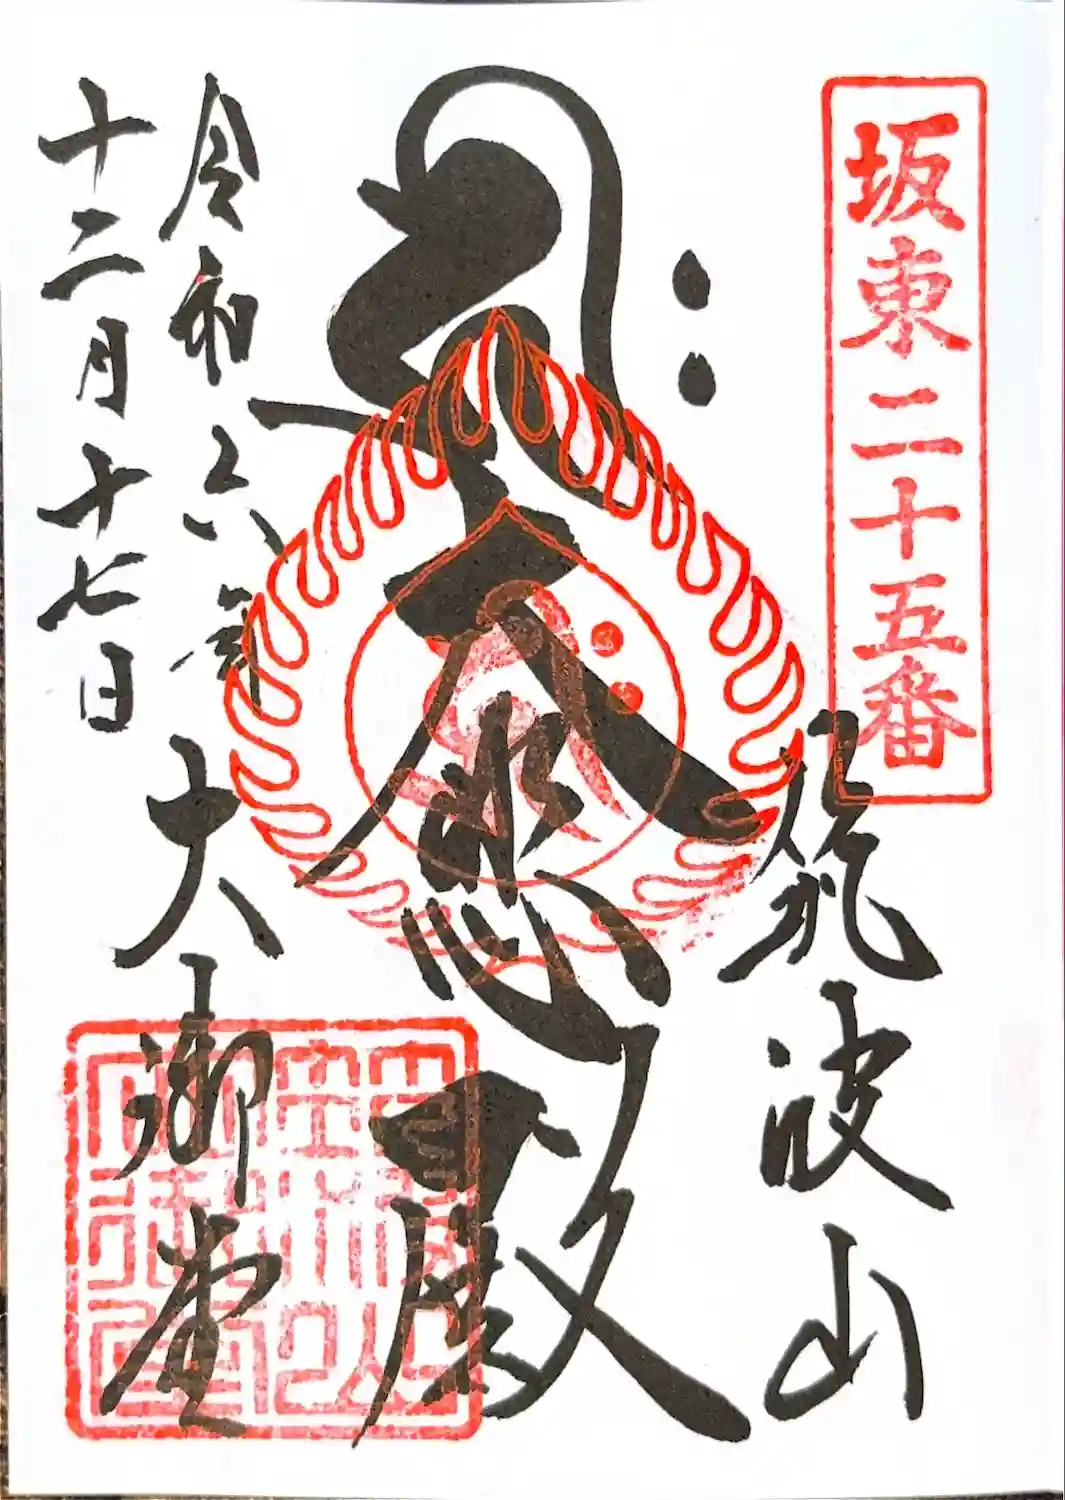 坂東二十五番
筑波山
大悲殿
令和六年
十二月十七日
大御堂